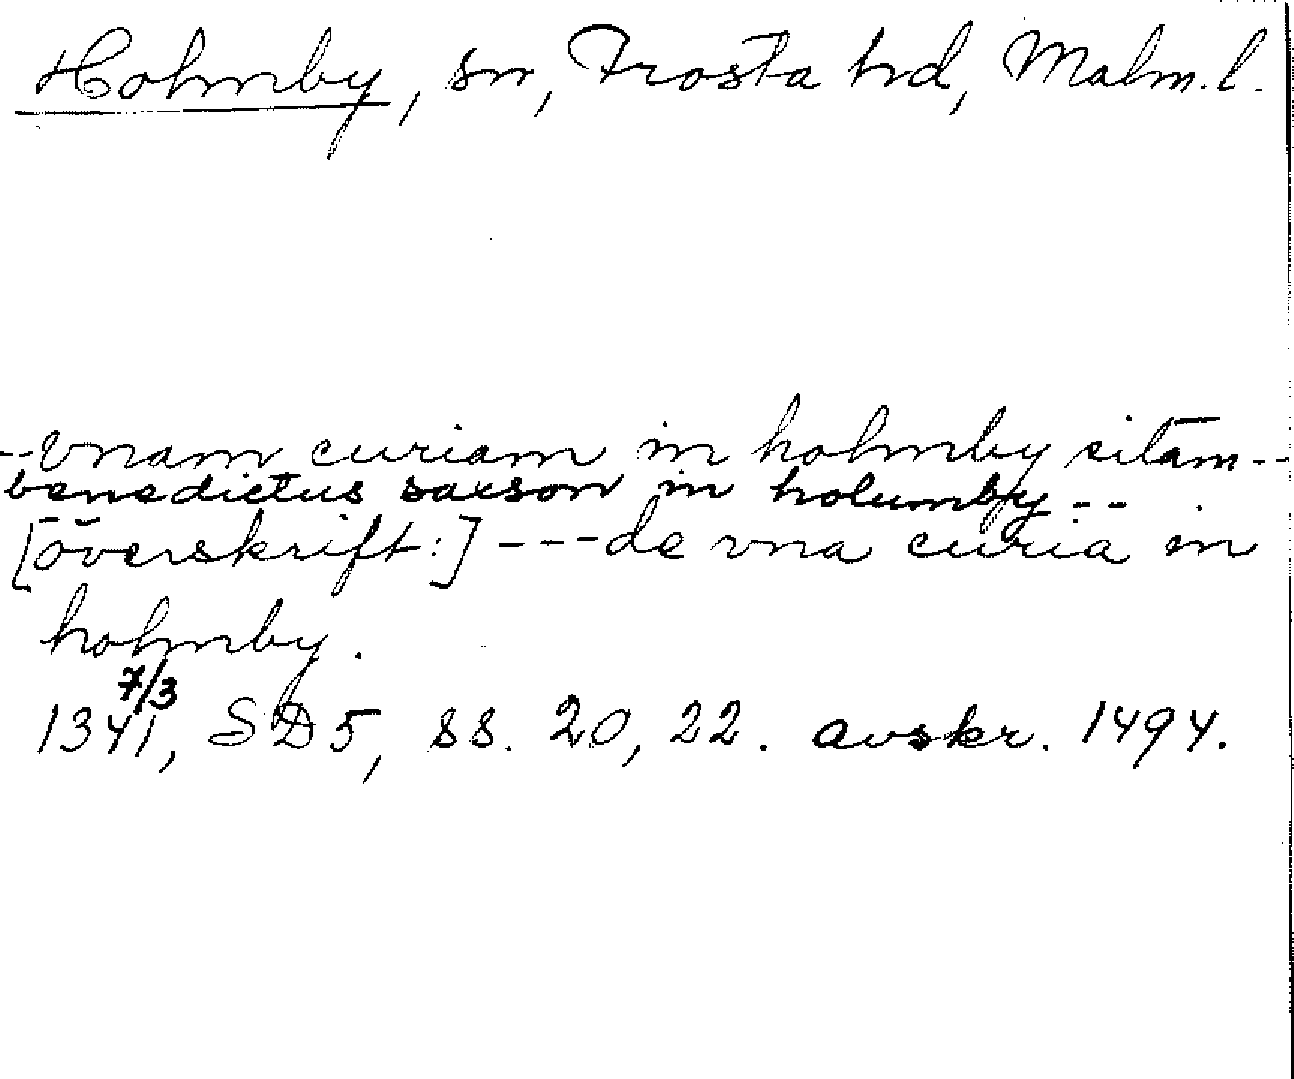 Holmby, sn, Frosta hd, Malm. l.
--vnam curiam in holmby sitam--
benedictus saxson in holumby--
[överskrift:] ---de vna curia in
holmby.
1341 7/3, SD 5, ss. 20, 22. avskr. 1494.